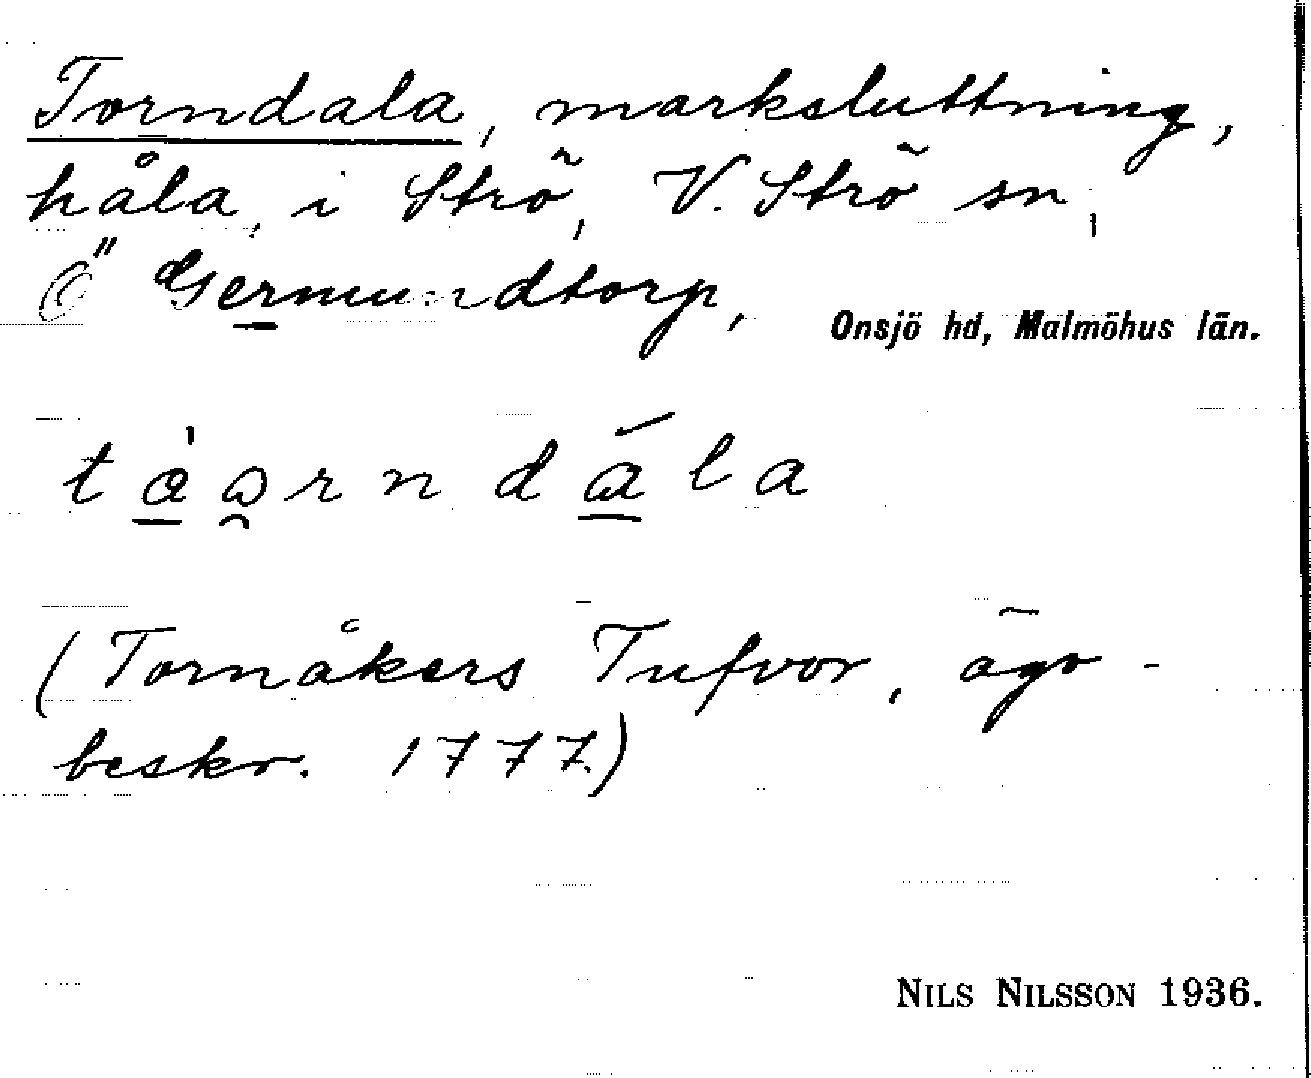 Torndala, marksluttning,
håla, i Strö, V. Strö sn,
Ö Germundtorp, Onsjö hd, Malmöhus län.
(Tornåkers Tufvor, ägo-
beskr. 1777.)
NILS NILSSON 1936.